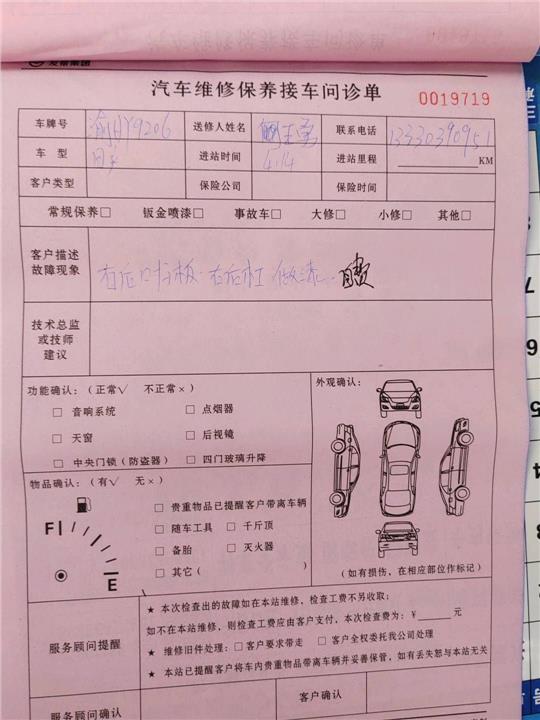 发帝集团
汽车维修保养接车问诊单
0019719
车牌号 送修人姓名 联系电话 13330390951
车 型 进站时间 4.14 进站里程 KM
客户类型 保险公司 保险时间
常规保养□ 钣金喷漆□ 事故车□ 大修□ 小修□ 其他□
客户描述
故障现象
右后 右后杠 做漆
技术总监
或技师
建议
功能确认：（正常√ 不正常×） 外观确认：
□ 音响系统 □ 点烟器
□ 天窗 □ 后视镜
□ 中央门锁（防盗器） □ 四门玻璃升降
物品确认：（有√ 无×）
□ 贵重物品已提醒客户带离车辆
F
□ 随车工具 □ 千斤顶
□ 备胎 □ 灭火器
E
□ 其它（ ）
（如有损伤，在相应部位作标记）
服务顾问提醒
★ 本次检查出的故障如在本站维修，检查工费不另收取；
如不在本站维修，则检查工费应由客户支付，本次检查费为：￥ 元
★ 维修旧件处理：□ 客户要求带走 □ 客户全权委托我公司处理
★ 本站已提醒客户将车内贵重物品带离车辆并妥善保管，如有丢失恕与本站无关
服务顾问确认 客户确认